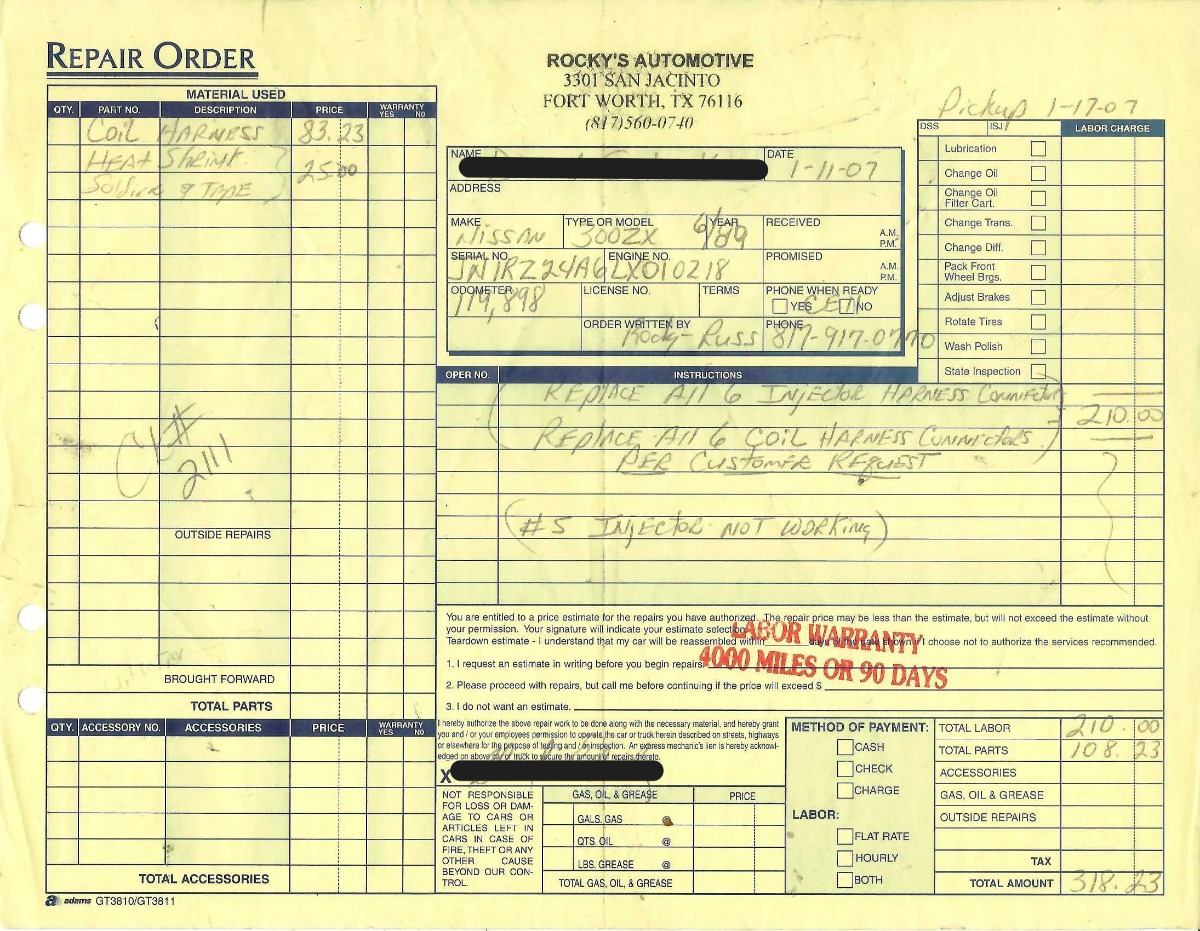 REPAIR ORDER
ROCKY'S AUTOMOTIVE
3301 SAN JACINTO
FORT WORTH, TX 76116
(817)560-0740
Pickup 1-17-07
MATERIAL USED
QTY. PART NO. DESCRIPTION PRICE WARRANTY YES NO
COIL HARNESS 83.23
HEAT Shrink
25.00
& TAPE
CK#
2111
OUTSIDE REPAIRS
TAX
BROUGHT FORWARD
TOTAL PARTS
QTY. ACCESSORY NO. ACCESSORIES PRICE WARRANTY YES NO
TOTAL ACCESSORIES
adams GT3810/GT3811
NAME
DATE 1-11-07
ADDRESS
MAKE NISSAN
TYPE OR MODEL 300ZX
YEAR 6/89
RECEIVED A.M. P.M.
SERIAL NO. JN1RZ24A6LX010218
ENGINE NO.
PROMISED A.M. P.M.
ODOMETER 119,898
LICENSE NO.
TERMS
PHONE WHEN READY
YES NO
ORDER WRITTEN BY Rocky-Russ
PHONE 817-917-0770
DSS ISJ LABOR CHARGE
Lubrication
Change Oil
Change Oil
Filter Cart.
Change Trans.
Change Diff.
Pack Front
Wheel Brgs.
Adjust Brakes
Rotate Tires
Wash Polish
State Inspection
OPER NO. INSTRUCTIONS
REPLACE All 6 INJECTOR HARNESS CONNECTORS
210.00
REPLACE All 6 COIL HARNESS CONNECTORS
PER CUSTOMER REQUEST
(#5 INJECTOR NOT WORKING)
You are entitled to a price estimate for the repairs you have authorized. The repair price may be less than the estimate, but will not exceed the estimate without
your permission. Your signature will indicate your estimate selection.
Teardown estimate - I understand that my car will be reassembled within days of the date shown if I choose not to authorize the services recommended.
LABOR WARRANTY
4000 MILES OR 90 DAYS
1. I request an estimate in writing before you begin repairs.
2. Please proceed with repairs, but call me before continuing if the price will exceed $
3. I do not want an estimate.
I hereby authorize the above repair work to be done along with the necessary material, and hereby grant
you and / or your employees permission to operate the car or truck herein described on streets, highways
or elsewhere for the purpose of testing and / or inspection. An express mechanic's lien is hereby acknowl-
edged on above car or truck to secure the amount of repairs thereto.
X
NOT RESPONSIBLE
FOR LOSS OR DAM-
AGE TO CARS OR
ARTICLES LEFT IN
CARS IN CASE OF
FIRE, THEFT OR ANY
OTHER CAUSE
BEYOND OUR CON-
TROL.
GAS, OIL & GREASE PRICE
GALS. GAS @
QTS. OIL @
LBS. GREASE @
TOTAL GAS, OIL, & GREASE
METHOD OF PAYMENT:
CASH
CHECK
CHARGE
LABOR:
FLAT RATE
HOURLY
BOTH
TOTAL LABOR 210.00
TOTAL PARTS 108.23
ACCESSORIES
GAS, OIL & GREASE
OUTSIDE REPAIRS
TAX
TOTAL AMOUNT 318.23